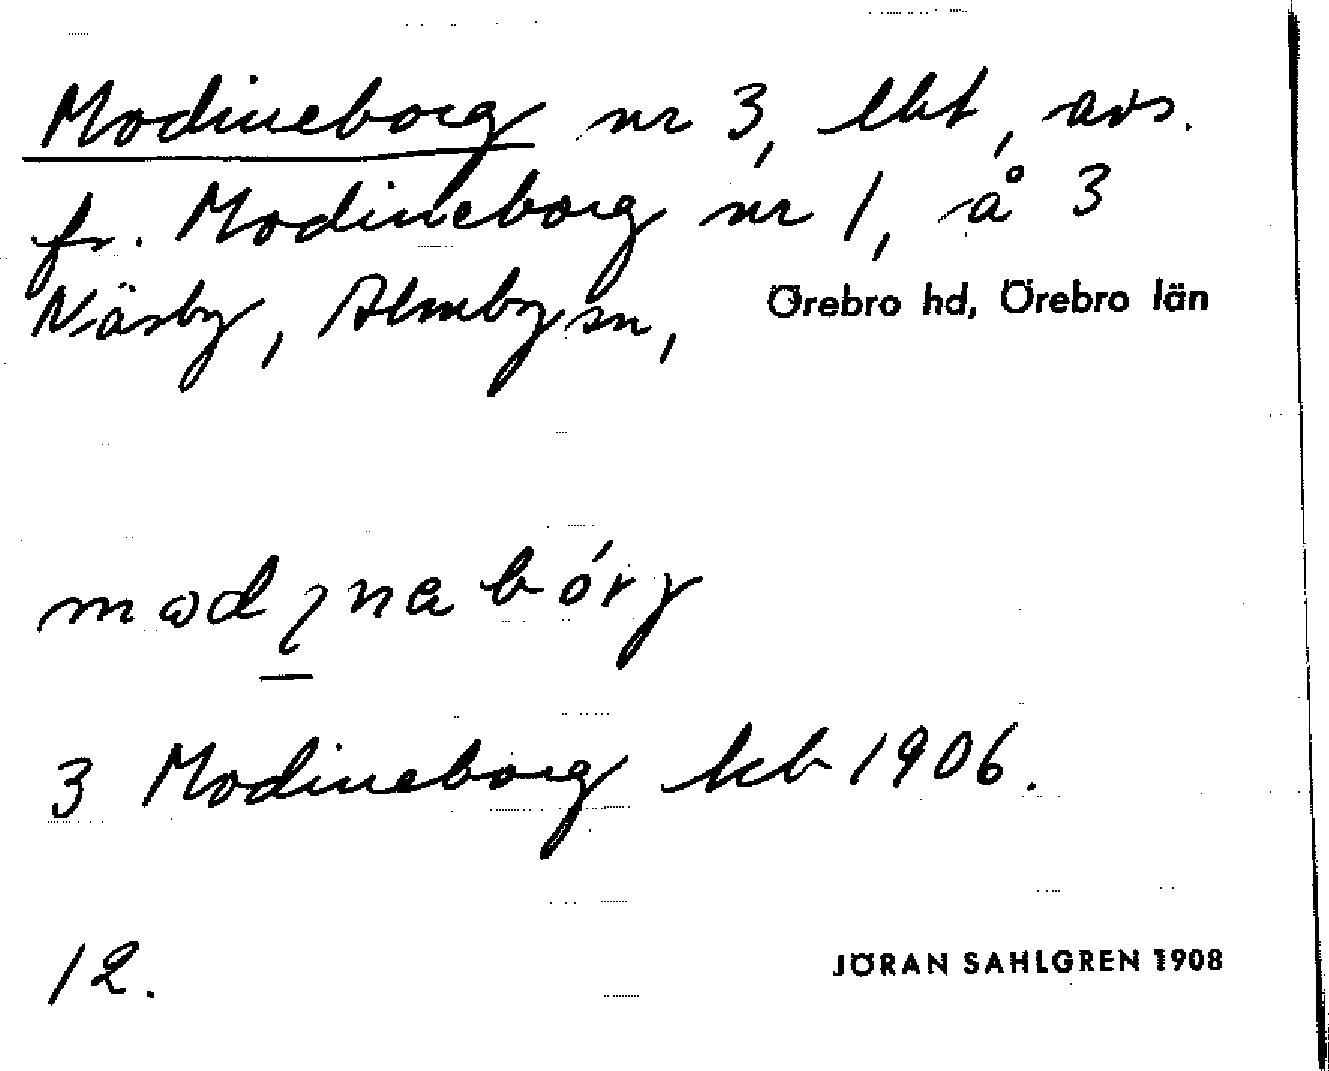 Modineborg nr 3, lht, avs.
fr. Modineborg nr 1, å 3
Näsby, Almby sn, Örebro hd, Örebro län
3 Modineborg kb 1906.
12.
JÖRAN SAHLGREN 1908